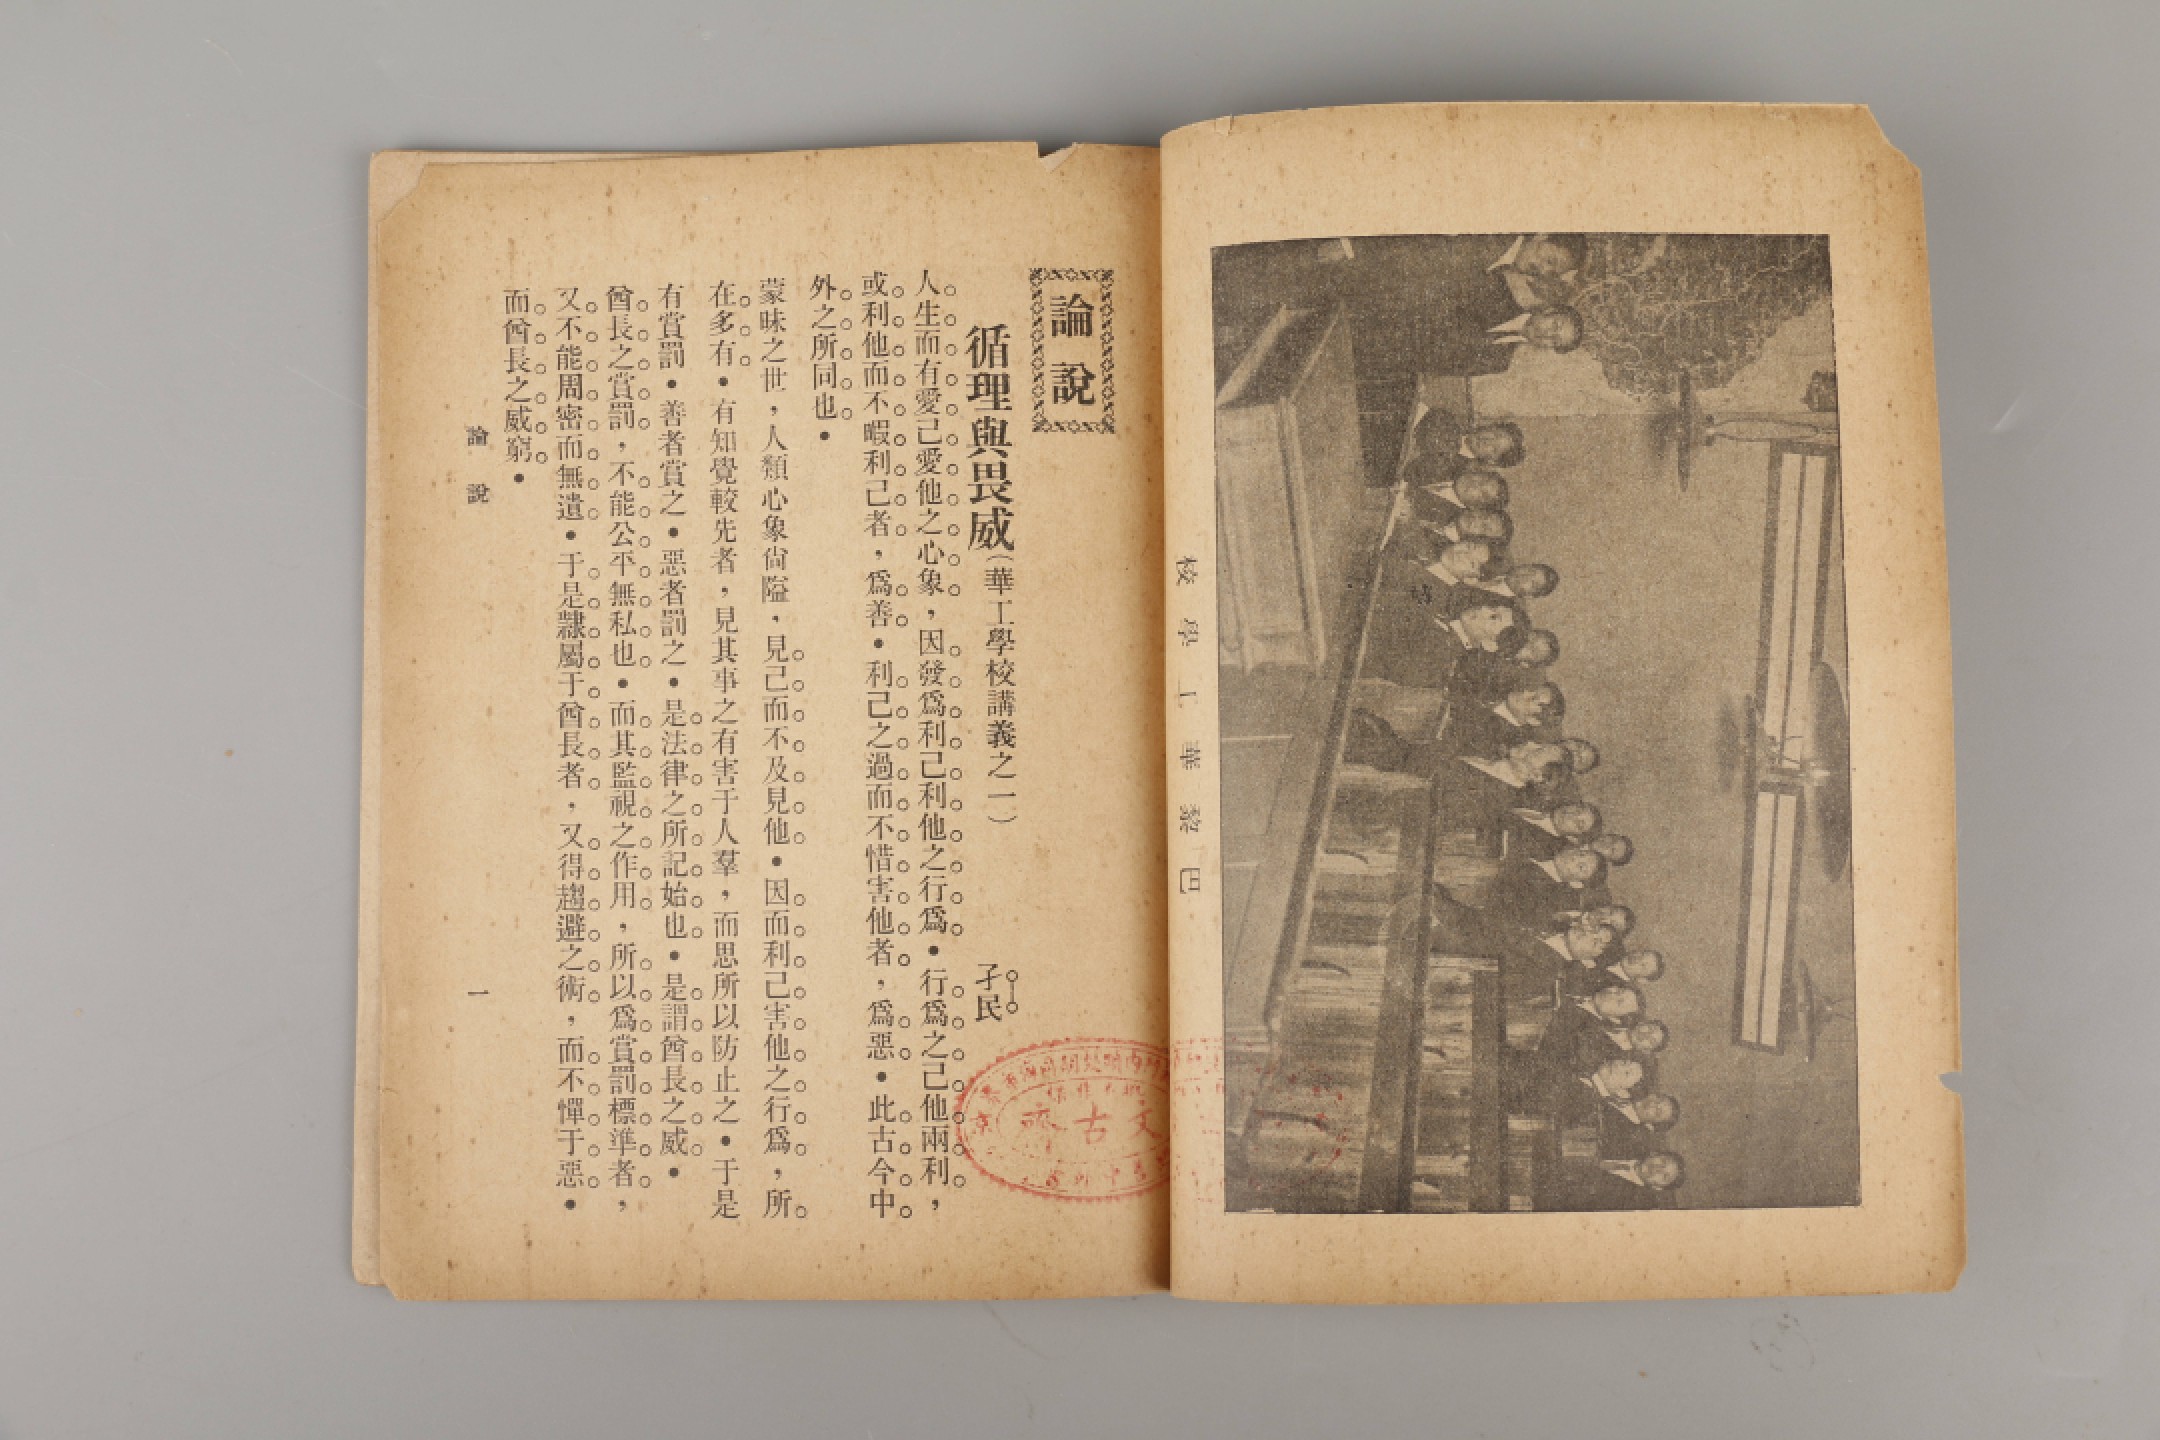 巴黎華工學校
論說
循理與畏威（華工學校講義之一）
孑民
人生而有愛己愛他之心象，因發爲利己利他之行爲・行爲之己他兩利，
或利他而不暇利己者，爲善・利己之過而不惜害他者，爲惡・此古今中
外之所同也・
蒙昧之世，人類心象尙隘，見己而不及見他・因而利己害他之行爲，所
在多有・有知覺較先者，見其事之有害于人羣，而思所以防止之・于是
有賞罰・善者賞之・惡者罰之・是法律之所記始也・是謂酋長之威・
酋長之賞罰，不能公平無私也・而其監視之作用，所以爲賞罰標準者，
又不能周密而無遺・于是隸屬于酋長者，又得趨避之術，而不憚于惡・
而酋長之威窮・
論說
一
文古